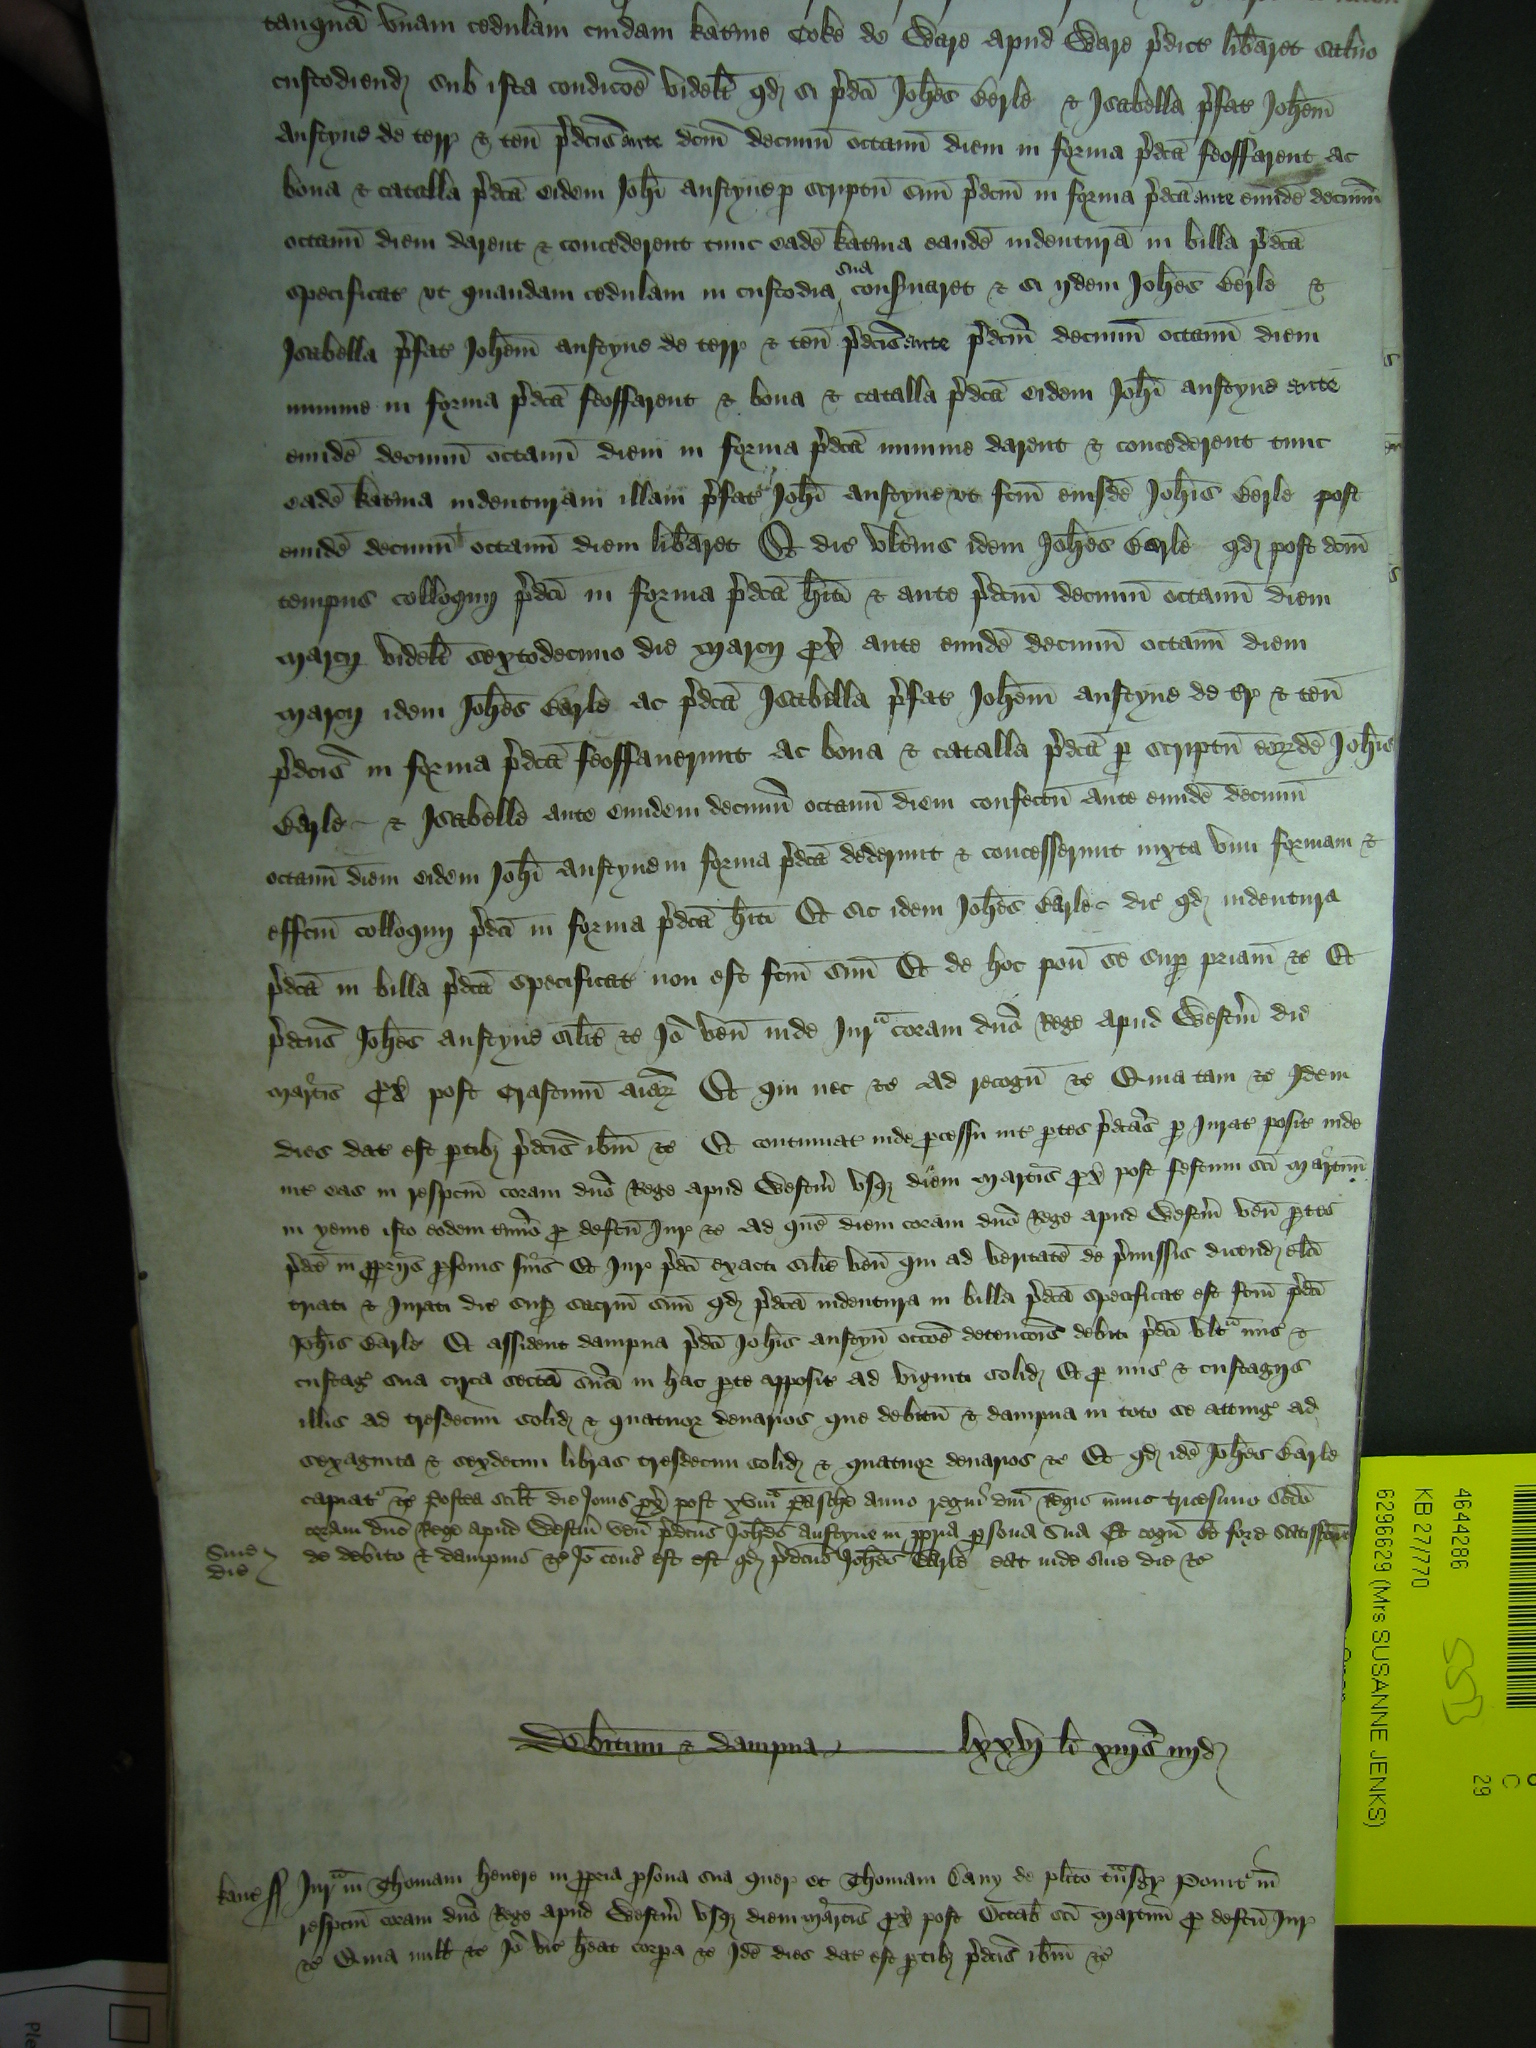 tanquā vnam cedulam cuidam kat'ine Coke de Ware apud Ware p'dict' lib'aret saluo
custodiend' sub ista condicōe videlt' qd' si p'dcī Joh'es Gerle & Isabella p'fat' Joh'em
Anstyne de terr' & teñ p'dcīs ante dcm̄ decimū octauū diem in forma p'dcā feoffarent ac
bona & catalla p'dcā eidem Joh'i Anstyne p scriptū suū p'dcm̄ in forma p'dcā ante eundē decimū
octauū diem darent & concederent tunc eadē kat'ina eandē indenturā in billa p'dcā
specificat' vt quandam cedulam in custodia sua conseruaret & si ijdem Joh'es Gerle &
Isabella p'fat' Joh'em Anstyne de terr' & teñ p'dcīs ante p'dcm̄ decimū octauū diem
minime in forma p'dcā feoffarent & bona & catalla p'dcā eidem Joh'i Anstyne ante
eundē decimū octauū diem in forma p'dcā minime darent & concederent tunc
eadē kat'ina indenturam illam p'fat' Joh'i Anstyne vt fcm̄ eiusdē Joh'is Gerle post
eundē decimū octauū diem lib'aret Et dic' vlt'ius idem Joh'es Gerle qd' post dcm̄
tempus colloquij p'dcī in forma p'dcā h'itī & ante p'dcm̄ decimū octauū diem
marcij videlt' sextodecimo die marcij px' ante eundē decimū octauū diem
marcij idem Joh'es Gerle ac p'dcā Isabella p'fat' Joh'em Anstyne de t'r' & teñ
p'dcīs in forma p'dcā feoffauerunt ac bona & catalla p'dcā p scriptū eor'dē Joh'is
Gerle & Isabelle ante eundem decimū octauū diem confectū ante eundē decimū
octauū diem eidem Joh'i Anstyne in forma p'dcā dederunt & concesserunt iuxta vim formam &
effcm̄ colloquij p'dcī in forma p'dcā h'itī Et sic idem Joh'es Gerle dic' qd' indentura
p'dcā in billa p'dcā specificat' non est fcm̄ suū Et de hoc poñ se sup p'riam &c Et
p'dcūs Joh'es Anstyne silit' &c Iō veñ inde Jurᵃ coram dnō Rege apud Westm' die
martis px' post crastinū aīar' Et qui nec &c Ad recogñ &c Quia tam &c Idem
dies dat' est ptib' p'dcīs ib'm &c Et continuat' inde pcessu int' ptes p'dcās p Jurat' posit' inde
int' eas in respcm̄ coram dnō Rege apud Westm' vsq' diem martis px' post festum scī Martini
in yeme isto eodem t'mīo p defcū Jur' &c Ad quē diem coram dnō Rege apud Westm' veñ ptes
p'dcē in pprijs psonis suis Et Jur' p'dcī exacti silit' veñ qui ad veritatē de p'missis dicend' elcī
triati & Jurati dic' sup sacrm̄ suū qd' p'dcā indentura in billa p'dcā specificat' est fcm̄ p'dcī
Joh'is Gerle Et assident dampna p'dcī Joh'is Anstyñ occōe detencōis debiti p'dcī vltᵃ mis' &
custag' sua circa sectā suā in hac pte apposit' ad viginti solid' Et p mis' & custagijs
illis ad tresdecim solid' & quatuor denarios que debitū & dampna in toto se atting' ad
sexaginta & sexdecim libras tresdecim solid' & quatuor denarios &c Et qd' idē Joh'es Gerle
capiat' &c Postea scilt' die Jouis px' post xviiiᵃ Pasche anno regni dnī Regis nunc tricesimo scd'o
coram dnō Rege apud Westm' veñ p'dcūs Joh'es Anstyne in ppria psona sua Et cogñ se fore satisfcm̄
Sine die
de debito & dampnis &c Iō cons' est est qd' p'dcūs Joh'es Gerle eat inde sine die &c
Debitum & dampna lxxvj li' xiijs' iiijd'
Kanc' ss Jurᵃ int' Thomam henere in ppria psona sua quer' et Thomam Cany de plito t'nsgr' Ponit' in
respcm̄ coram dnō Rege apud Westm' vsq' diem martis px' post Octab' scī Martini p defcū Jur'
&c Quia null' &c Iō vic' h'eat corpa &c Idē dies dat' est ptib' p'dcīs ib'm &c
4644286
KB 27/770
6296629 (Mrs SUSANNE JENKS)
C
29
Ple